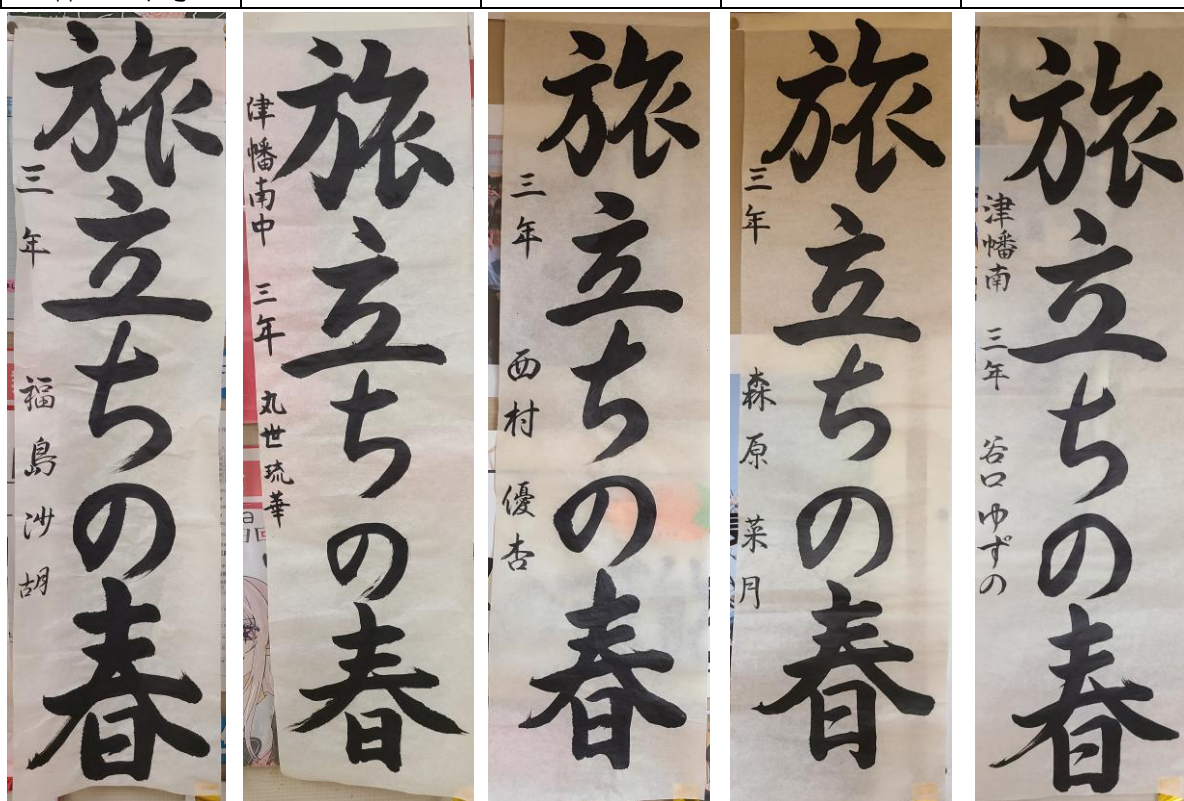 旅立ちの春
三年 福島沙胡
旅立ちの春
津幡南中 三年 丸世琉華
旅立ちの春
三年 西村優杏
旅立ちの春
三年 森原菜月
旅立ちの春
津幡南 三年 谷口ゆずの